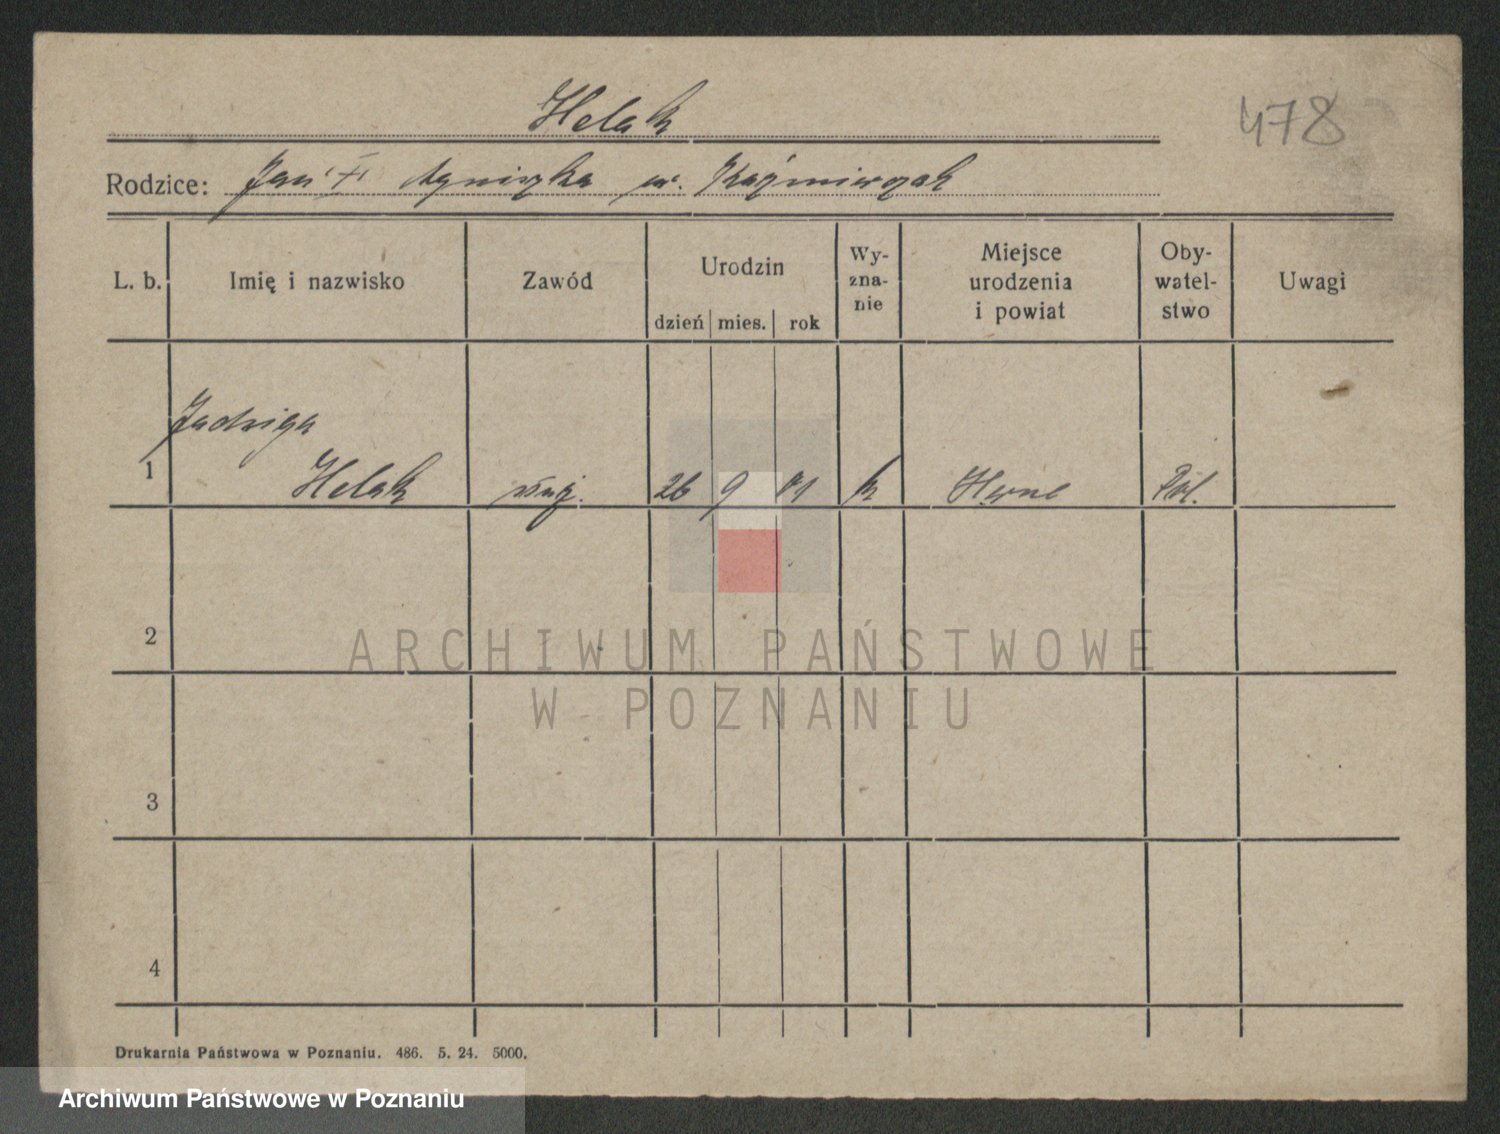 Helak
478
Rodzice: Jan Agnieszka ur. Kaźmierczak
L. b.
Imię i nazwisko
Zawód
Urodzin
dzień
mies.
rok
Wy-
zna-
nie
Miejsce
urodzenia
i powiat
Oby-
watel-
stwo
Uwagi
Jadwiga
1 Helak 26 9 01 k Herne Pol.
2
ARCHIWUM PAŃSTWOWE
W POZNANIU
3
4
Drukarnia Państwowa w Poznaniu. 486. 5. 24. 5000.
Archiwum Państwowe w Poznaniu